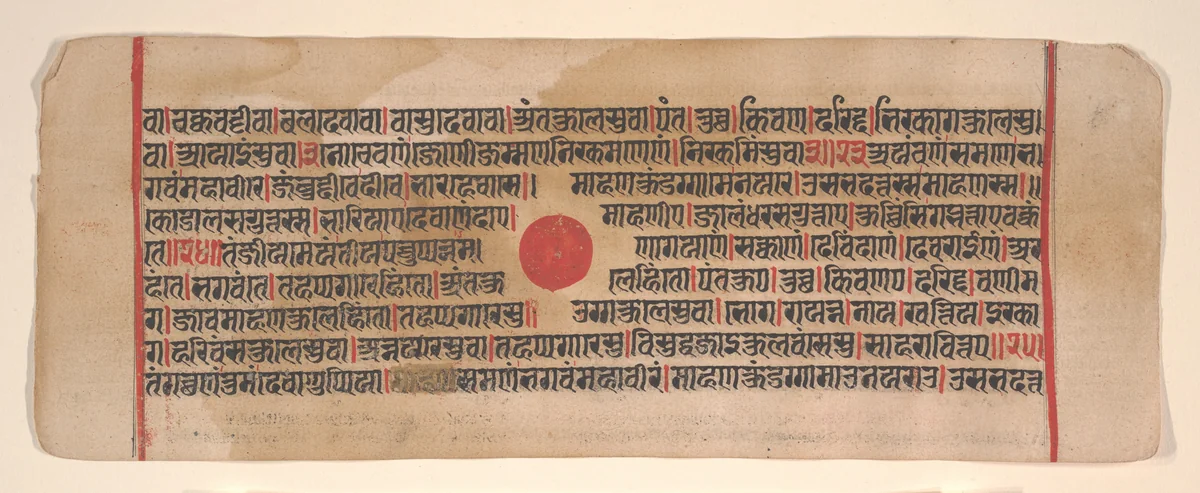 वा।चक्कवट्टीवा।बलदेवावा।वासुदेवावा।अंतकुलेसुवा।पंत।तुच्छ।किवण।दरिद्द।भिरकागकुलेसु।
वा।आयाइंसुवा।३नोचेवणं।जोणीजम्मणनिरकमणेणं।निरकमिंसुवा३॥२३अयंचणंसमणेभ।
गवंमहावीरे।जंबुद्दीवेदीवे।भारहेवासे।। माहणकुंडग्गामेनयरे।उसभदत्तस्समाहणस्स।॥
।कोडालसगुत्तस्स।भारियाएदेवाणंदाए। माहणीए।जालंधरसगुत्ताए।कुच्छिंसिगब्भत्ताएवक्कं
ते॥२४॥तंजीयमेयंतीयपच्चुप्पन्नम। णागयाणं।सक्काणं।देविंदाणं।देवराईणं।अर
हंते।भगवंते।तहप्पगारेहिंतो।अंतकु लेहिंतो।पंतकुए।तुच्छ।किवणए।दरिद्द।वणीम
ग।जावमाहणकुलेहिंतो।तहप्पगारेसु॥ उग्गकुलेसुवा।भोग।रायन्न।नाय।खत्तिय।इरका
ग।हरिवंसकुलेसुवा।अन्नयरेसुवा।तहप्पगारेसु।विसुद्धजाइकुलवंसेसु।साहरावित्तए॥२५।
तंगच्छणंतुमंदेवाणुप्पिया।समणंभगवंमहावीरं।माहणकुंडग्गामाउनयराउ।उसभदत्त